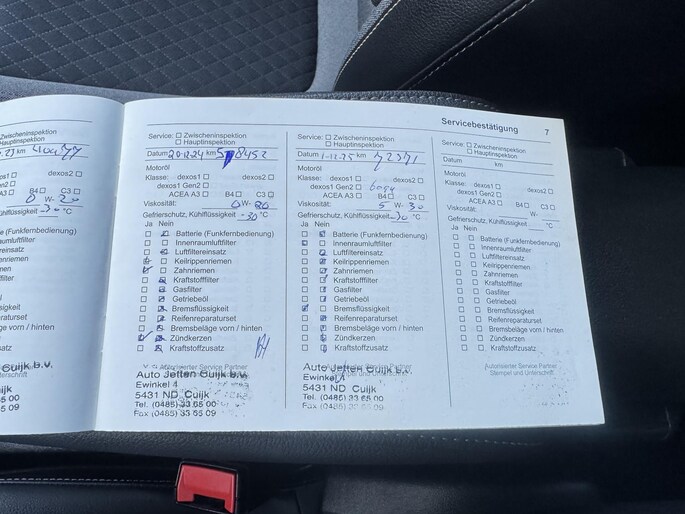 Servicebestätigung 7
Zwischeninspektion
Hauptinspektion
km
W-
B4 C3
°C
Gefrierschutz, Kühlflüssigkeit
Luftfilter
Zahnriemen
Kraftstofffilter
Gasfilter
Getriebeöl
Bremsflüssigkeit
vorn / hinten
Zündkerzen
Kraftstoffzusatz
Cuijk b.v.
Service: Zwischeninspektion
Hauptinspektion
Datum 20.12.24 km
Motoröl
Klasse: dexos1 dexos2
dexos1 Gen2
ACEA A3 B4 C3
Viskosität: 0 W- 20
Gefrierschutz, Kühlflüssigkeit -30 °C
Ja Nein
Batterie (Funkfernbedienung)
Innenraumluftfilter
Luftfiltereinsatz
Keilrippenriemen
Zahnriemen
Kraftstofffilter
Gasfilter
Getriebeöl
Bremsflüssigkeit
Reifenreparaturset
Bremsbeläge vorn / hinten
Zündkerzen
Kraftstoffzusatz
Autorisierter Service Partner
Auto Jetten Cuijk b.v.
Ewinkel 4
5431 ND Cuijk
Tel. (0485) 33 65 00
Fax (0485) 33 65 09
Service: Zwischeninspektion
Hauptinspektion
Datum 1-12-25 km 72371
Motoröl
Klasse: dexos1 dexos2
dexos1 Gen2
ACEA A3 B4 C3
Viskosität: 5 W- 30
Gefrierschutz, Kühlflüssigkeit -30 °C
Ja Nein
Batterie (Funkfernbedienung)
Innenraumluftfilter
Luftfiltereinsatz
Keilrippenriemen
Zahnriemen
Kraftstofffilter
Gasfilter
Getriebeöl
Bremsflüssigkeit
Reifenreparaturset
Bremsbeläge vorn / hinten
Zündkerzen
Kraftstoffzusatz
Auto Jetten Cuijk b.v.
Ewinkel 4
5431 ND Cuijk
Tel. (0485) 33 65 00
Fax (0485) 33 65 09
Service: Zwischeninspektion
Hauptinspektion
Datum km
Motoröl
Klasse: dexos1 dexos2
dexos1 Gen2
ACEA A3 B4 C3
Viskosität: W-
Gefrierschutz, Kühlflüssigkeit °C
Ja Nein
Batterie (Funkfernbedienung)
Innenraumluftfilter
Luftfiltereinsatz
Keilrippenriemen
Zahnriemen
Kraftstofffilter
Gasfilter
Getriebeöl
Bremsflüssigkeit
Reifenreparaturset
Bremsbeläge vorn / hinten
Zündkerzen
Kraftstoffzusatz
Autorisierter Service Partner
Stempel und Unterschrift